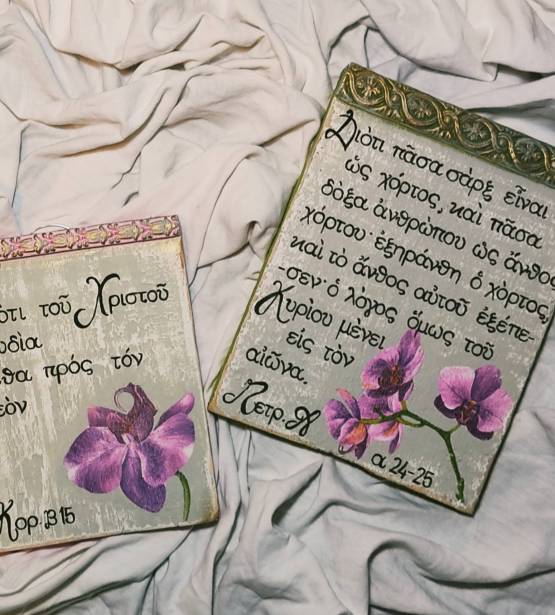 ότι τοῦ Χριστοῦ
ωδία
θα πρός τόν
εὸν
Κορ. Β 15
Διότι πᾶσα σὰρξ εἶναι
ὡς χόρτος, καὶ πᾶσα
δόξα ἀνθρώπου ὡς ἄνθο
χόρτου· ἐξηράνθη ὁ χόρτος,
καὶ τὸ ἄνθος αὐτοῦ ἐξέπε-
-σεν· ὁ λόγος ὅμως τοῦ
Κυρίου μένει
εἰς τὸν
αἰῶνα.
Πετρ. Α
α 24-25